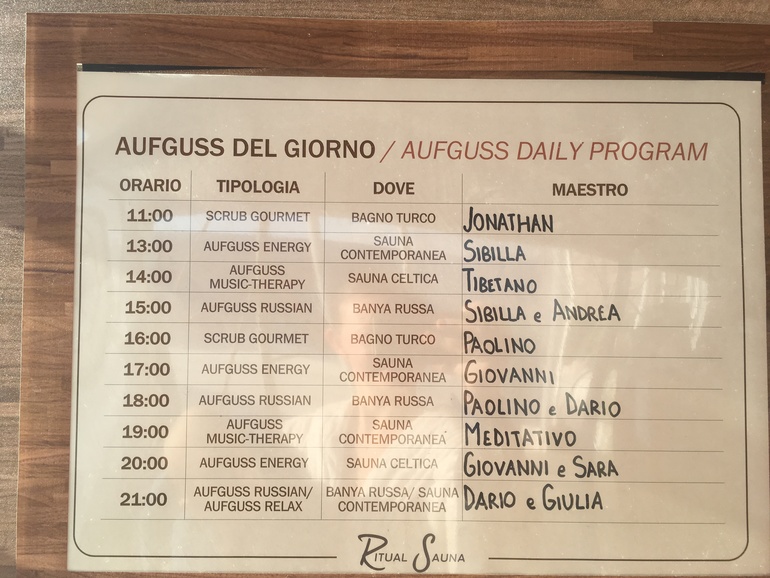 AUFGUSS DEL GIORNO / AUFGUSS DAILY PROGRAM
ORARIO TIPOLOGIA DOVE MAESTRO
11:00 SCRUB GOURMET BAGNO TURCO JONATHAN
13:00 AUFGUSS ENERGY SAUNA CONTEMPORANEA SIBILLA
14:00 AUFGUSS MUSIC-THERAPY SAUNA CELTICA TIBETANO
15:00 AUFGUSS RUSSIAN BANYA RUSSA SIBILLA e ANDREA
16:00 SCRUB GOURMET BAGNO TURCO PAOLINO
17:00 AUFGUSS ENERGY SAUNA CONTEMPORANEA GIOVANNI
18:00 AUFGUSS RUSSIAN BANYA RUSSA PAOLINO e DARIO
19:00 AUFGUSS MUSIC-THERAPY SAUNA CONTEMPORANEA MEDITATIVO
20:00 AUFGUSS ENERGY SAUNA CELTICA GIOVANNI e SARA
21:00 AUFGUSS RUSSIAN/ AUFGUSS RELAX BANYA RUSSA/ SAUNA CONTEMPORANEA DARIO e GIULIA
RITUAL SAUNA